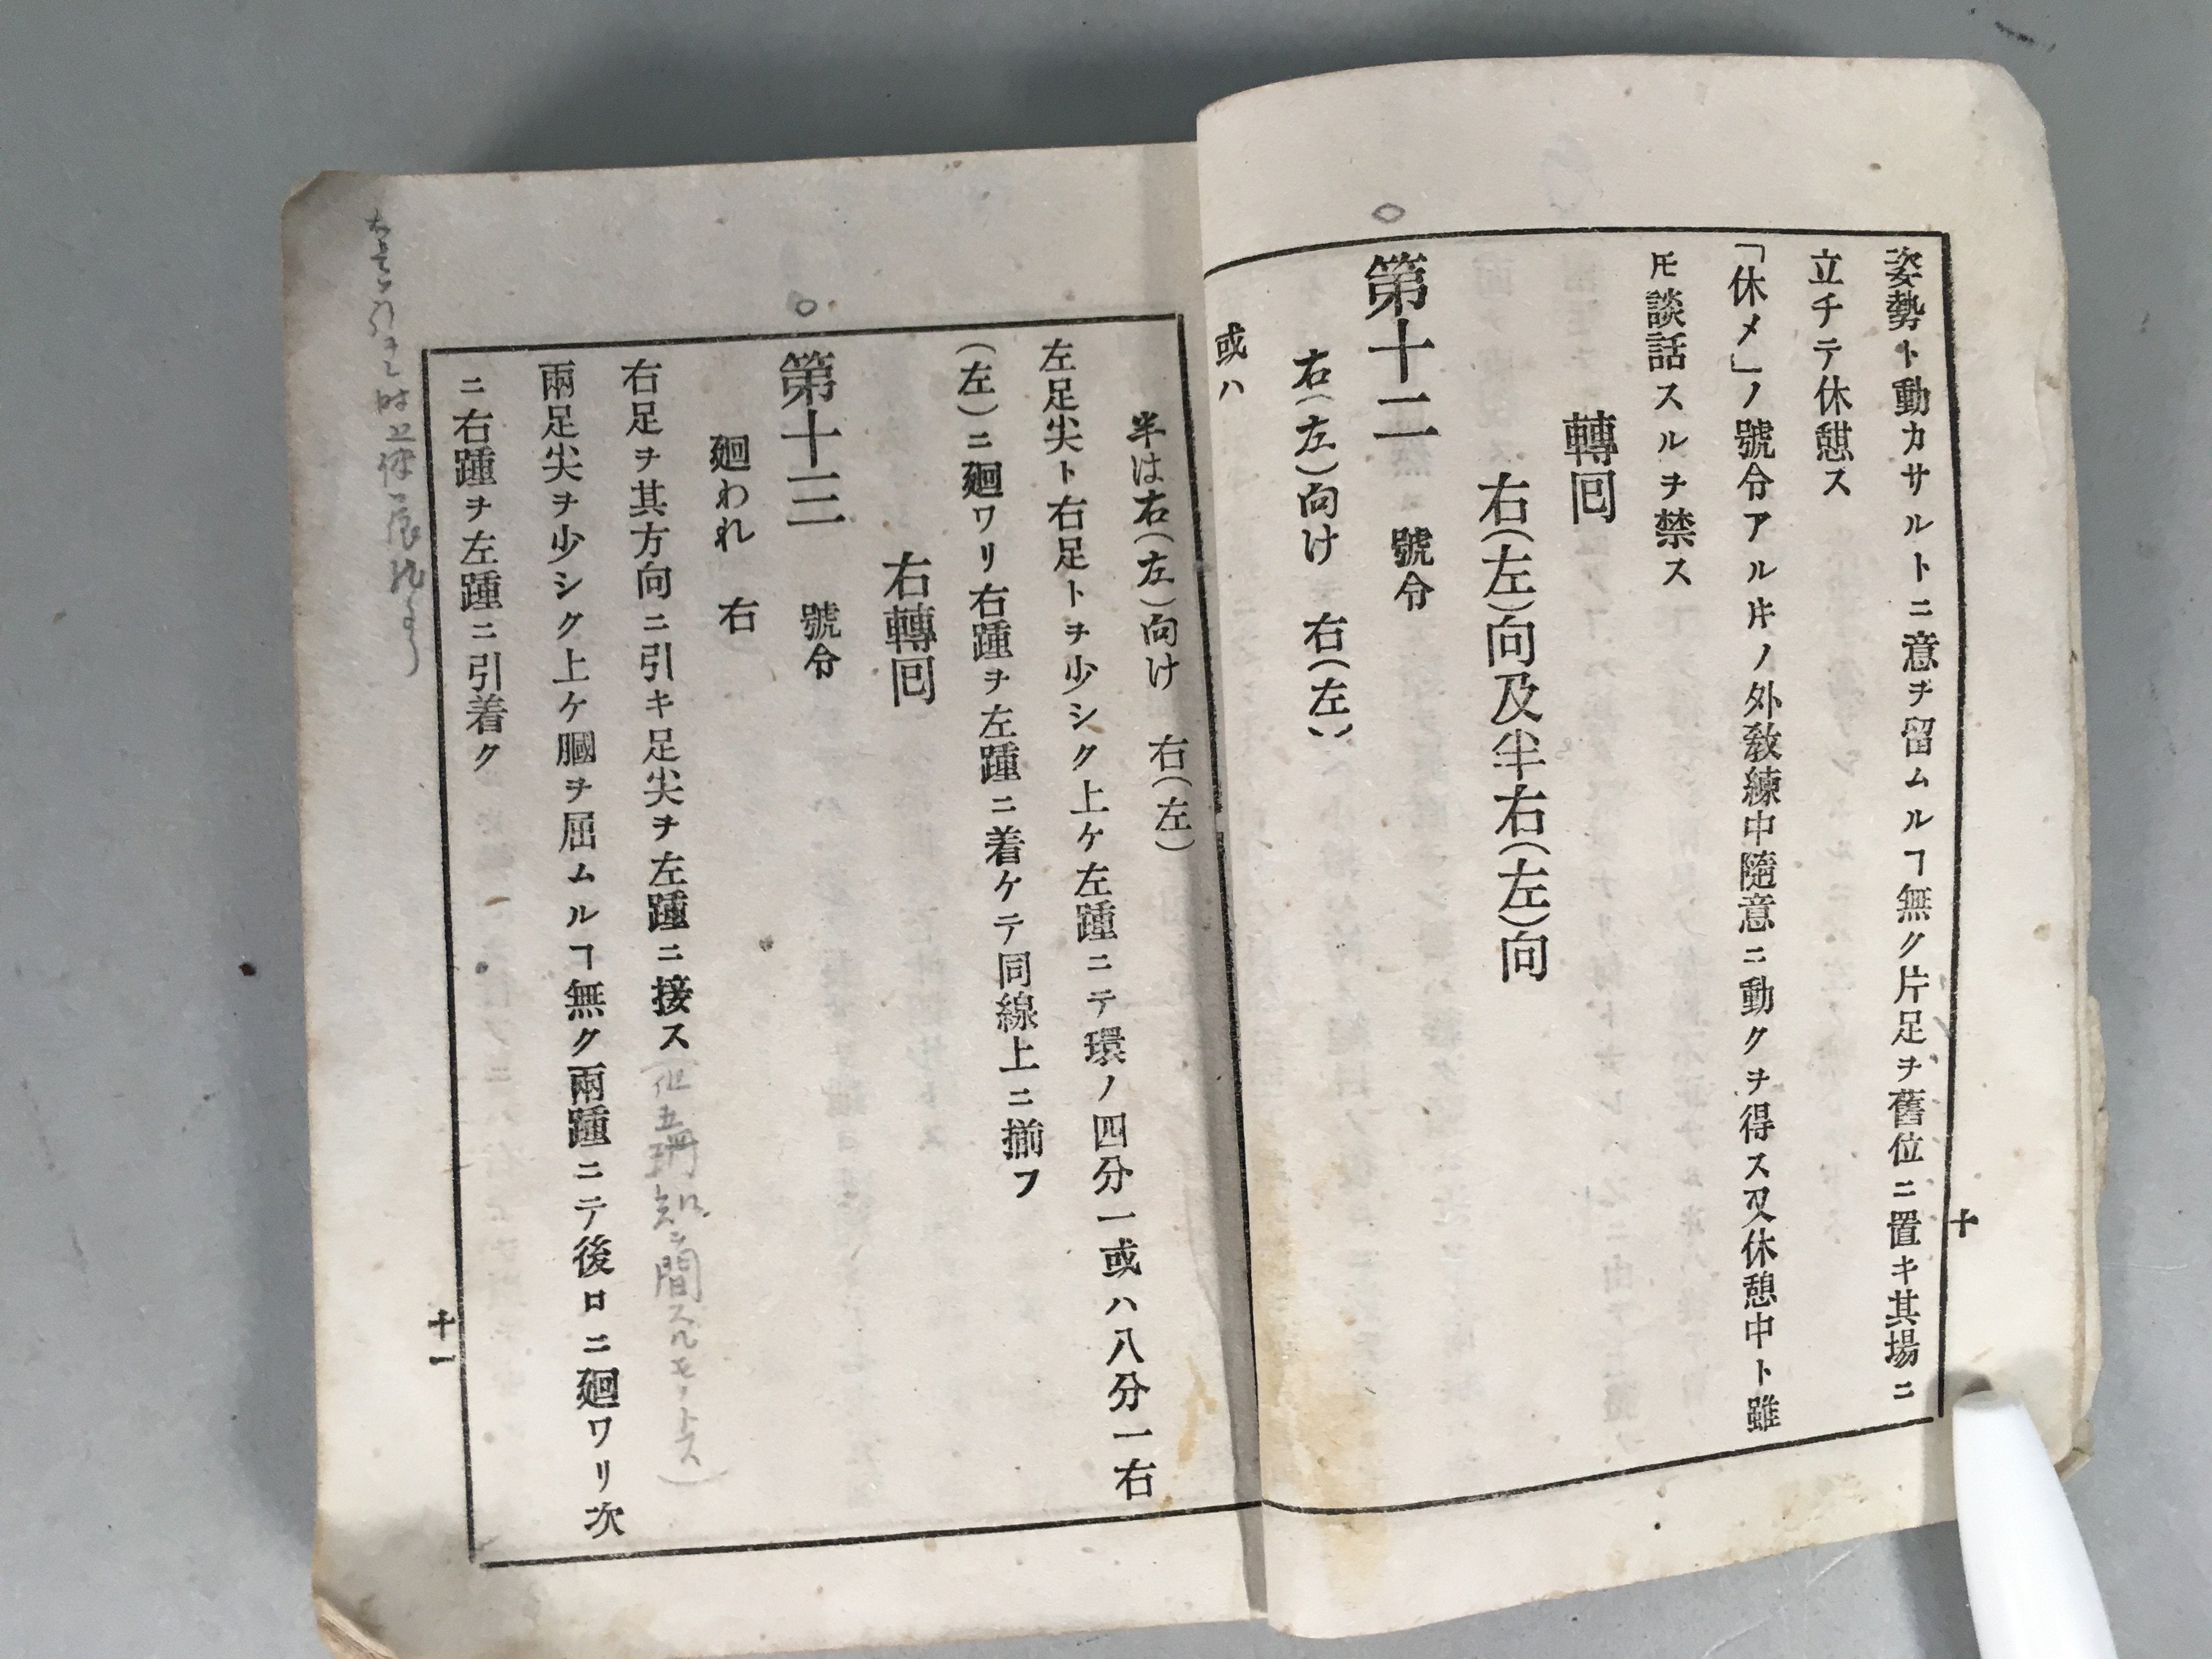 姿勢ト動カサルトニ意ヲ留ムルヿ無ク片足ヲ舊位ニ置キ其場ニ
立チテ休憇ス
「休メ」ノ號令アルキノ外敎練中隨意ニ動クヲ得ス又休憩中ト雖
𪜈談話スルヲ禁ス
轉回
右(左)向及半右(左)向
第十二 號令
右(左)向け 右(左)
或ハ
十
半は右(左)向け 右(左)
左足尖ト右足トヲ少シク上ケ左踵ニテ環ノ四分一或ハ八分一右
(左)ニ廻ワリ右踵ヲ左踵ニ着ケテ同線上ニ揃フ
右轉回
第十三 號令
廻われ 右
右足ヲ其方向ニ引キ足尖ヲ左踵ニ接ス
兩足尖ヲ少シク上ケ膕ヲ屈ムルヿ無ク兩踵ニテ後ロニ廻ワリ次
ニ右踵ヲ左踵ニ引着ク
十一